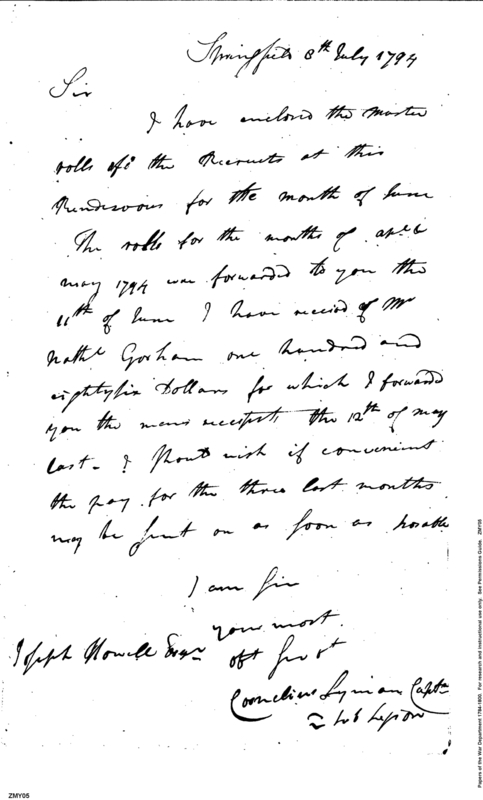 Springfield 8th July 1794
Sir
I have enclosed the muster
rolls of the Recruits at this
Rendezvous for the month of June
The rolls for the months of Aprl &
may 1794 was forwarded to you the
11th of June I have receivd of Mr
Nathl Gorham one hundred and
eightysix Dollars for which I forwarded
you the mens receipts the 12th of may
last - I shoud wish if convenient
the pay for the three last months
may be sent on as soon as posable
I am Sir
your most
obt Servt
Joseph Howell Esqr
Cornelius Lyman Capt
2 Sub Legion
Papers of the War Department 1784-1800. For research and instructional use only. See Permissions Guide. ZMY05
ZMY05